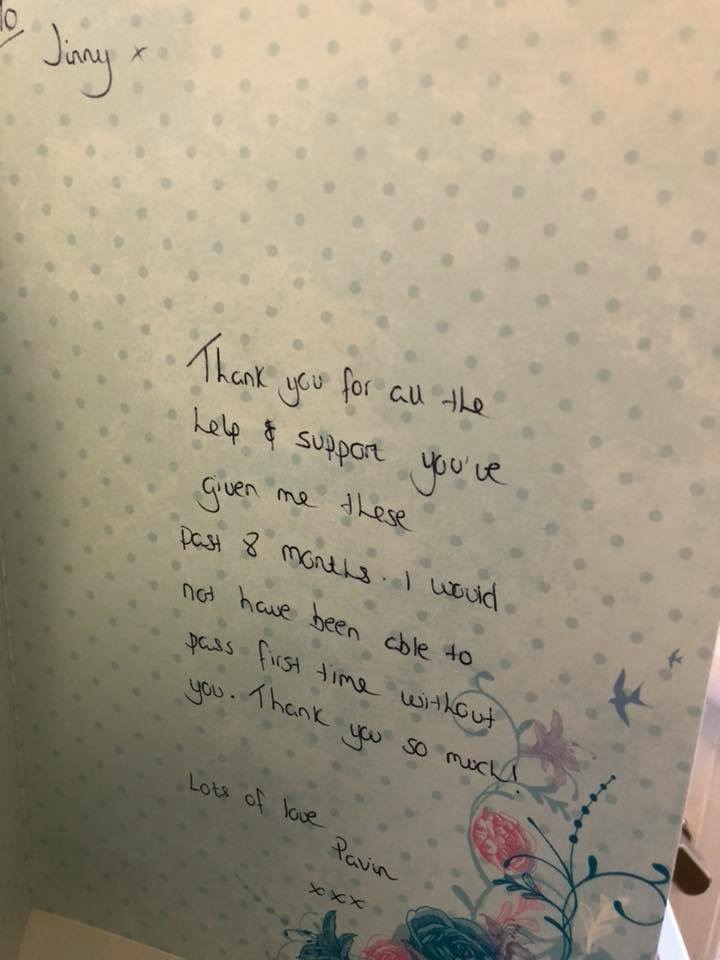 To
Jinny x
Thank you for all the
help & support you've
given me these
past 8 months. I would
not have been able to
pass first time without
you. Thank you so much!
Lots of love
Pavin
xxx